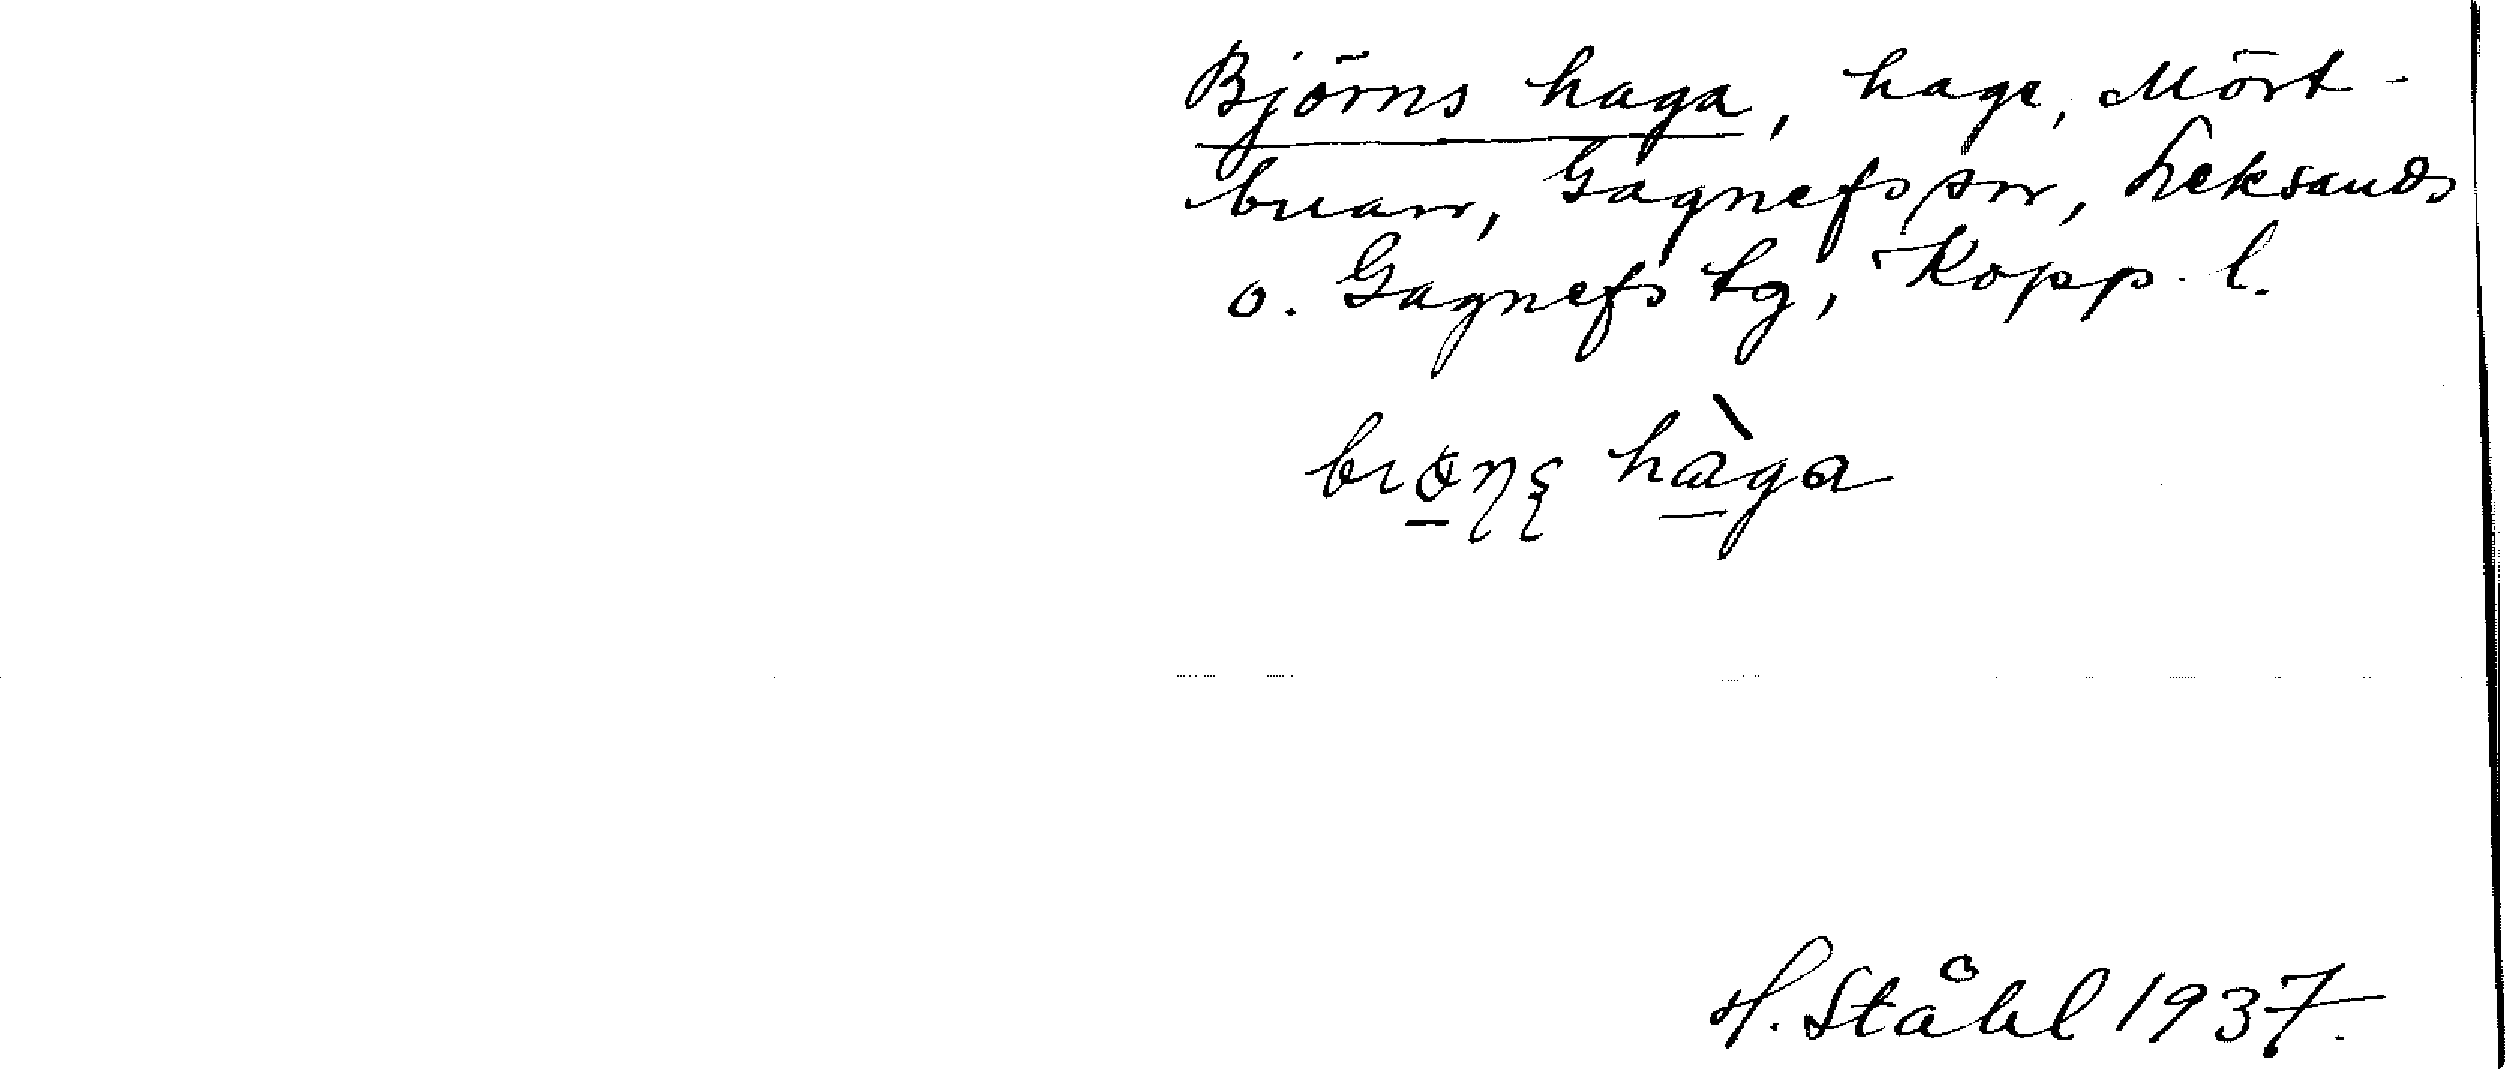 Björns haga, hage, Mört-
buan, Gagnefs sn, Leksands
o. Gagnefs tg, Kopp. l.
haga
H. Ståhl 1937.